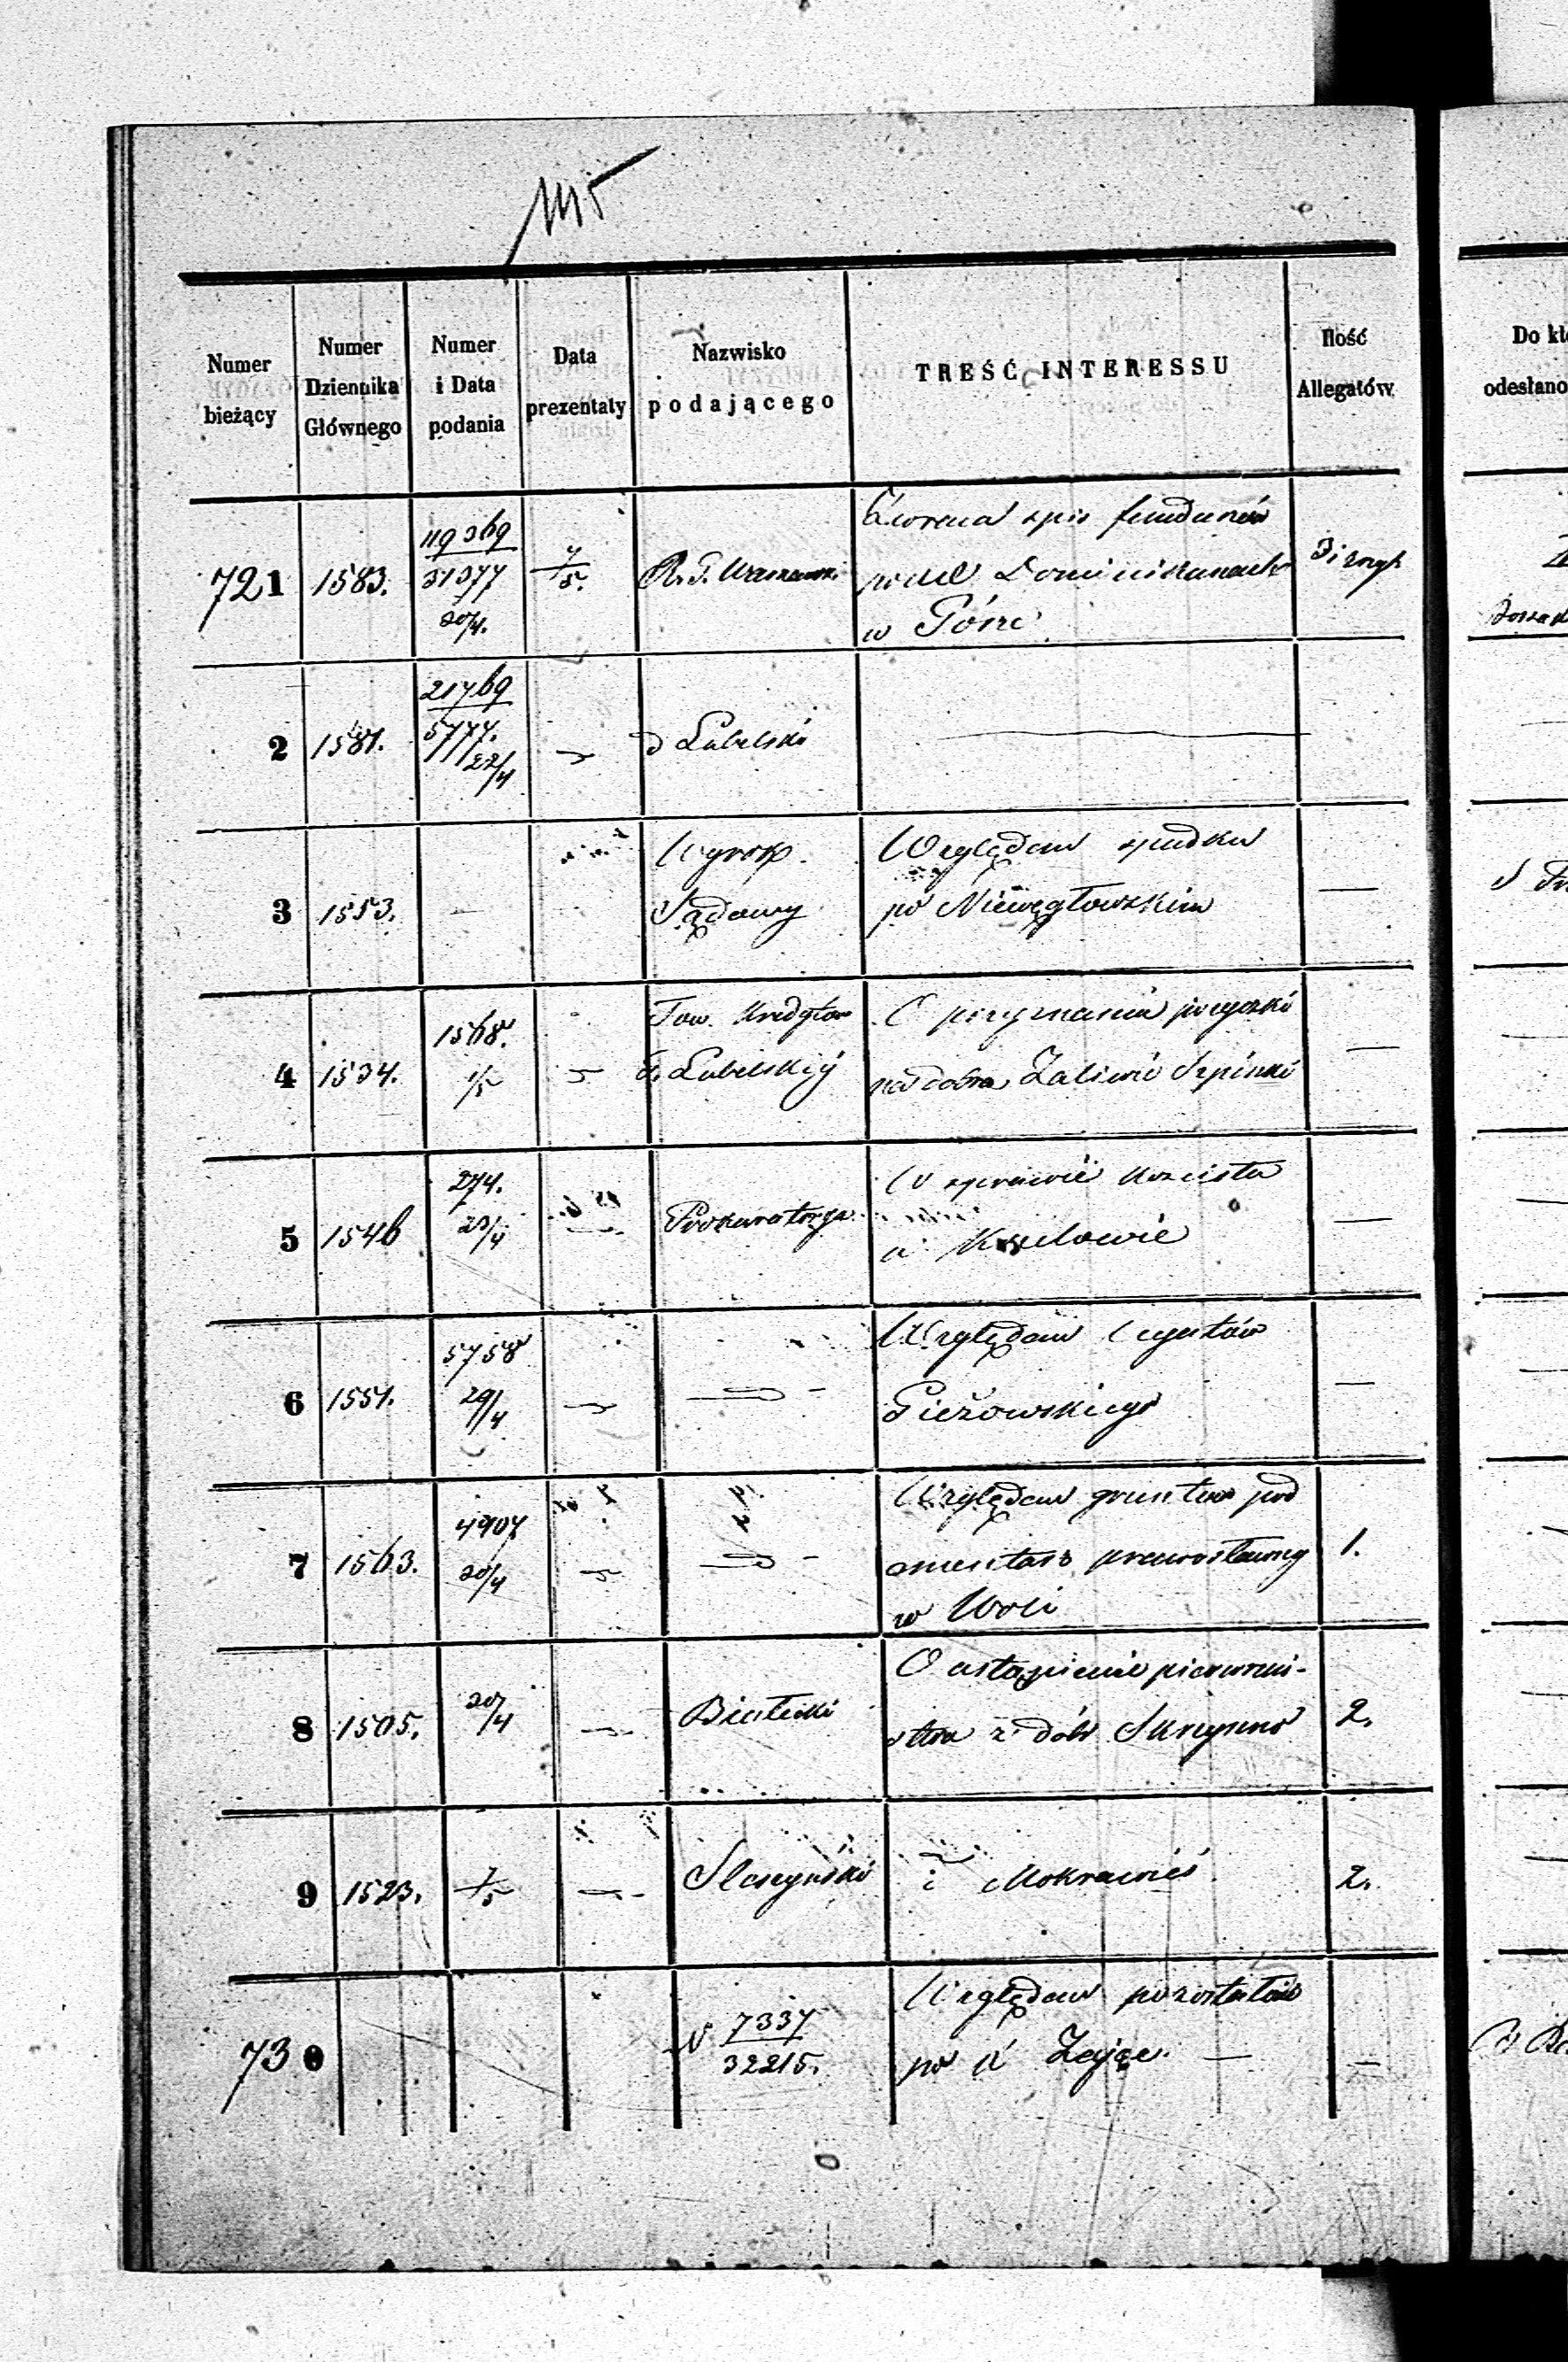 1115
Numer bieżący
Numer Dziennika Głównego
Numer i Data podania
Data prezentaty
Nazwisko podającego
TREŚĆ INTERESSU
Ilość Allegatów
Do
odesłano
721 1583. 119369 31377 20/4. 4/5. R. G. Warszaws. spis
po Dominikanach
w Górze
2 1581. 21769 5777. 22/4 d Lubelski
3 1553. — Wyrok Sądowy Względem spadku
po Niewęgłowskim —
4 1534. 1568. 1/5 Tow. Kredytow Lubelskiej O przyznanie pożyczki
na dobra Zaliwie Szpinki —
5 1546 274. 23/4 — Prokuratorya W sprawie Kościoła
w —
6 1551. 5758 29/4 Względem Legatów
Gieżowskiego —
7 1563. 4907 20/4 Względem gruntu pod
cmentarz prawosławny
w Woli 1.
8 1505. 20/4 Białecki O ustąpienie pierwszeń-
stwa z dóbr Skrzynno 2.
9 1523. 1/5 Sleszyński i Mokrawieś 2.
730 N 7337 32215. Względem pozostałości
po Zając — —